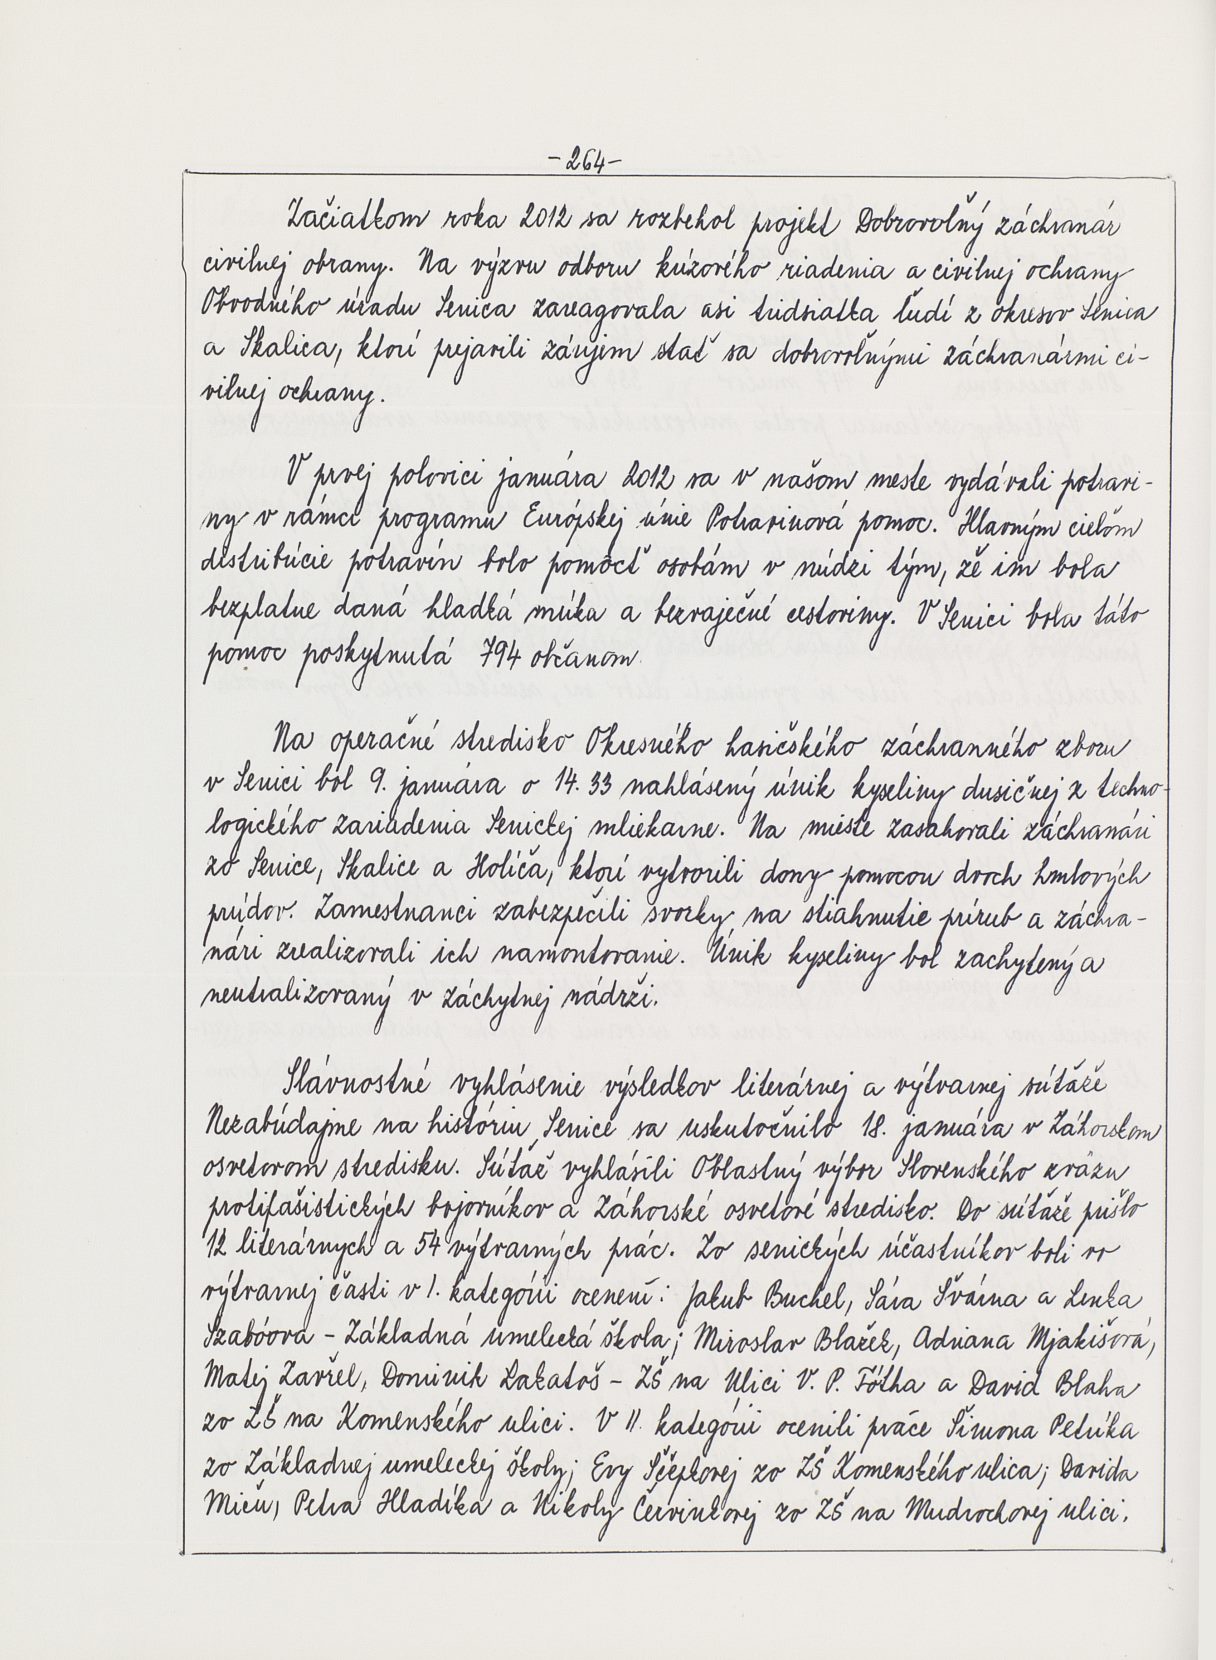 -264-
Začiatkom roka 2012 sa rozbehol projekt Dobrovoľný záchranár
civilnej obrany. Na výzvu odboru krízového riadenia a civilnej ochrany
Obvodného úradu Senica zareagovala asi tridsiatka ľudí z okresov Senica
a Skalica, ktorí prejavili záujem stať sa dobrovoľnými záchranármi ci-
vilnej ochrany.
V prvej polovici januára 2012 sa v našom meste vydávali potravi-
ny v rámci programu Európskej únie Potravinová pomoc. Hlavným cieľom
distribúcie potravín bolo pomôcť osobám v núdzi tým, že im bola
bezplatne daná hladká múka a bezvaječné cestoviny. V Senici bola táto
pomoc poskytnutá 794 občanom.
Na operačné stredisko Okresného hasičského záchranného zboru
v Senici bol 9. januára o 14.33 nahlásený únik kyseliny dusičnej z techno-
logického zariadenia Senickej mliekarne. Na mieste zasahovali záchranári
zo Senice, Skalice a Holíča, ktorí vytvorili clony pomocou dvoch hmlových
prúdov. Zamestnanci zabezpečili svorky na stiahnutie prírub a záchra-
nári zrealizovali ich namontovanie. Únik kyseliny bol zachytený a
neutralizovaný v záchytnej nádrži.
Slávnostné vyhlásenie výsledkov literárnej a výtvarnej súťaže
Nezabúdajme na históriu Senice sa uskutočnilo 18. januára v Záhorskom
osvetovom stredisku. Súťaž vyhlásili Oblastný výbor Slovenského zväzu
protifašistických bojovníkov a Záhorské osvetové stredisko. Do súťaže prišlo
12 literárnych a 54 výtvarných prác. Zo senických účastníkov boli vo
výtvarnej časti v I. kategórii ocenení: Jakub Buchel, Sára Švárna a Lenka
Szabóova - Základná umelecká škola; Miroslav Blažek, Adriana Mjakišová,
Matej Zavřel, Dominik Lakatoš - ZŠ na Ulici V. P. Tótha a David Blaha
zo ZŠ na Komenského ulici. V II. kategórii ocenili práce Šimona Petríka
zo Základnej umeleckej školy; Evy Ščepkovej zo ZŠ Komenského ulica; Davida
Miču, Petra Hladíka a Nikoly Červinkovej zo ZŠ na Mudrochovej ulici.